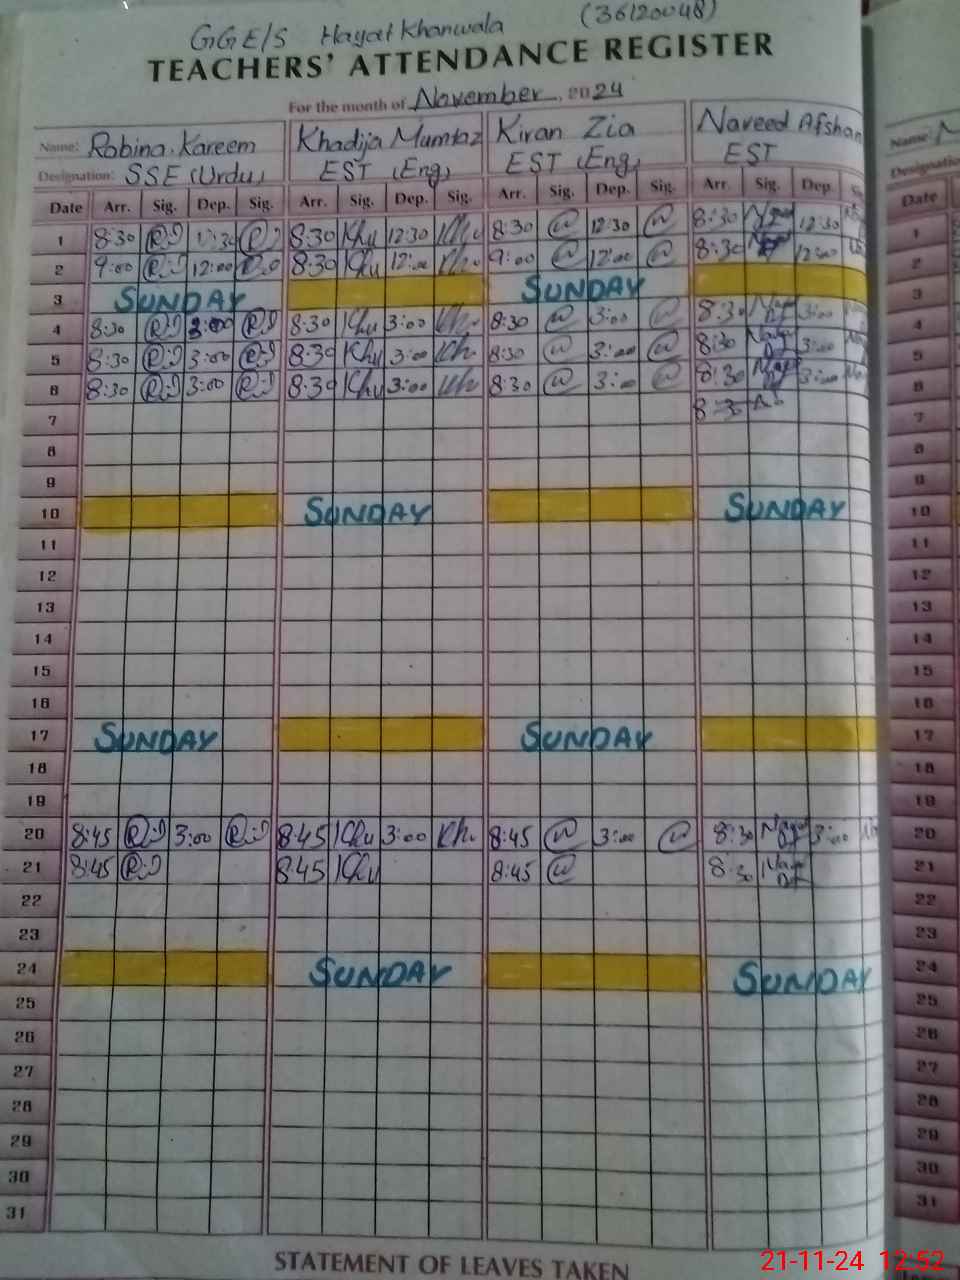 GGE/S Hayat Khanwala (36120048)
TEACHERS' ATTENDANCE REGISTER
For the month of November 2024
Name: Robina Kareem Khadija Mumtaz Kiran Zia Naveed Afshan
Designation: SSE (Urdu) EST (Eng) EST (Eng) EST
Date Arr. Sig. Dep. Sig. Arr. Sig. Dep. Sig. Arr. Sig. Dep. Sig. Arr. Sig. Dep.
1 8:30 8:30 Khu 12:30 Kh. 8:30 12:30 8:30 12:30
2 9:00 12:00 8:30 Khu 12:00 Kh. 9:00 12:00 8:30 12:00
3 SUNDAY SUNDAY
4 8:30 3:00 8:30 Khu 3:00 Kh. 8:30 3:00 8:30 3:00
5 8:30 3:00 8:30 Khu 3:00 Kh. 8:30 3:00 8:30 3:00
6 8:30 3:00 8:30 Khu 3:00 Kh 8:30 3:00 8:30 3:00
7 8:30
8
9
10 SUNDAY SUNDAY
11
12
13
14
15
16
17 SUNDAY SUNDAY
18
19
20 8:45 3:00 8:45 Khu 3:00 Kh. 8:45 3:00 8:30 3:00
21 8:45 8:45 Khu 8:45 8:30
22
23
24 SUNDAY SUNDAY
25
26
27
28
29
30
31
STATEMENT OF LEAVES TAKEN
Name:
Date
1
2
3
4
5
6
7
8
9
10
11
12
13
14
15
16
17
18
19
20
21
22
23
24
25
26
27
28
29
30
31
21-11-24 12:52